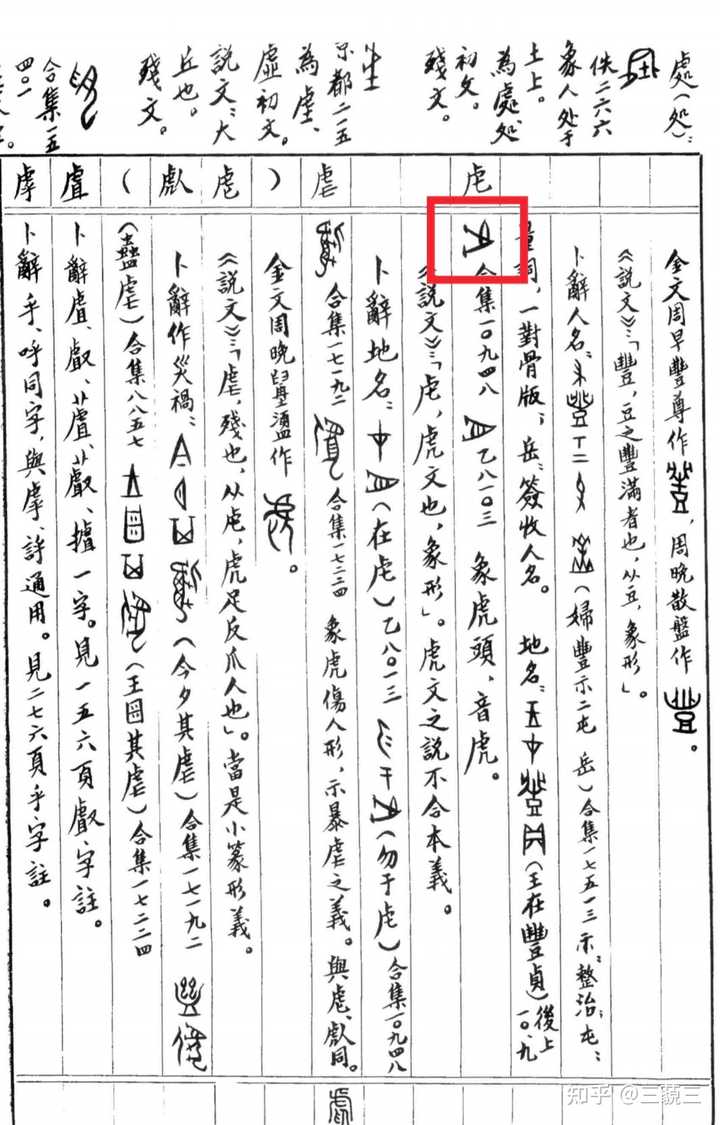 處(処):
佚二六六
象人处于
土上。
為處、処
初文。
殘文。
京都二一五
為虛、
虛初文。
說文:大
丘也。
殘文。
合集一五
四〇一
虍
虐
(虤虎)
䖒
虖
金文周早豐尊作,周晚散盤作。
《說文》:「豐,豆之豐滿者也,从豆,象形」。
卜辭人名:(婦豐示二屯 岳)合集一七五一三 示:整治;屯:
量詞,一對骨版;岳:簽收人名。 地名:(王在豐貞)後上一〇、九
合集一〇九四八 乙八一〇三 象虎頭,音虎。
《說文》:「虍,虎文也,象形」。虎文之說不合本義。
卜辭地名:(在虍)乙八〇一三 (勿于虍)合集一〇九四八
合集一七一九二 合集一七二二四 象虎傷人形,示暴虐之義。與虎同。
金文周晚盨作。
《說文》:「虐,殘也,从虍,虎足反爪人也」。當是小篆形義。
卜辭作災禍:(今夕其虐)合集一七一九二
(蠱虐)合集八八五七 (王囚其虐)合集一七二二四
卜辭䖒、𠭯、一字。見一五六頁𠭯字註。
卜辭乎、呼同字,與虖、許通用。見二七六頁乎字註。
知乎 @三貌三